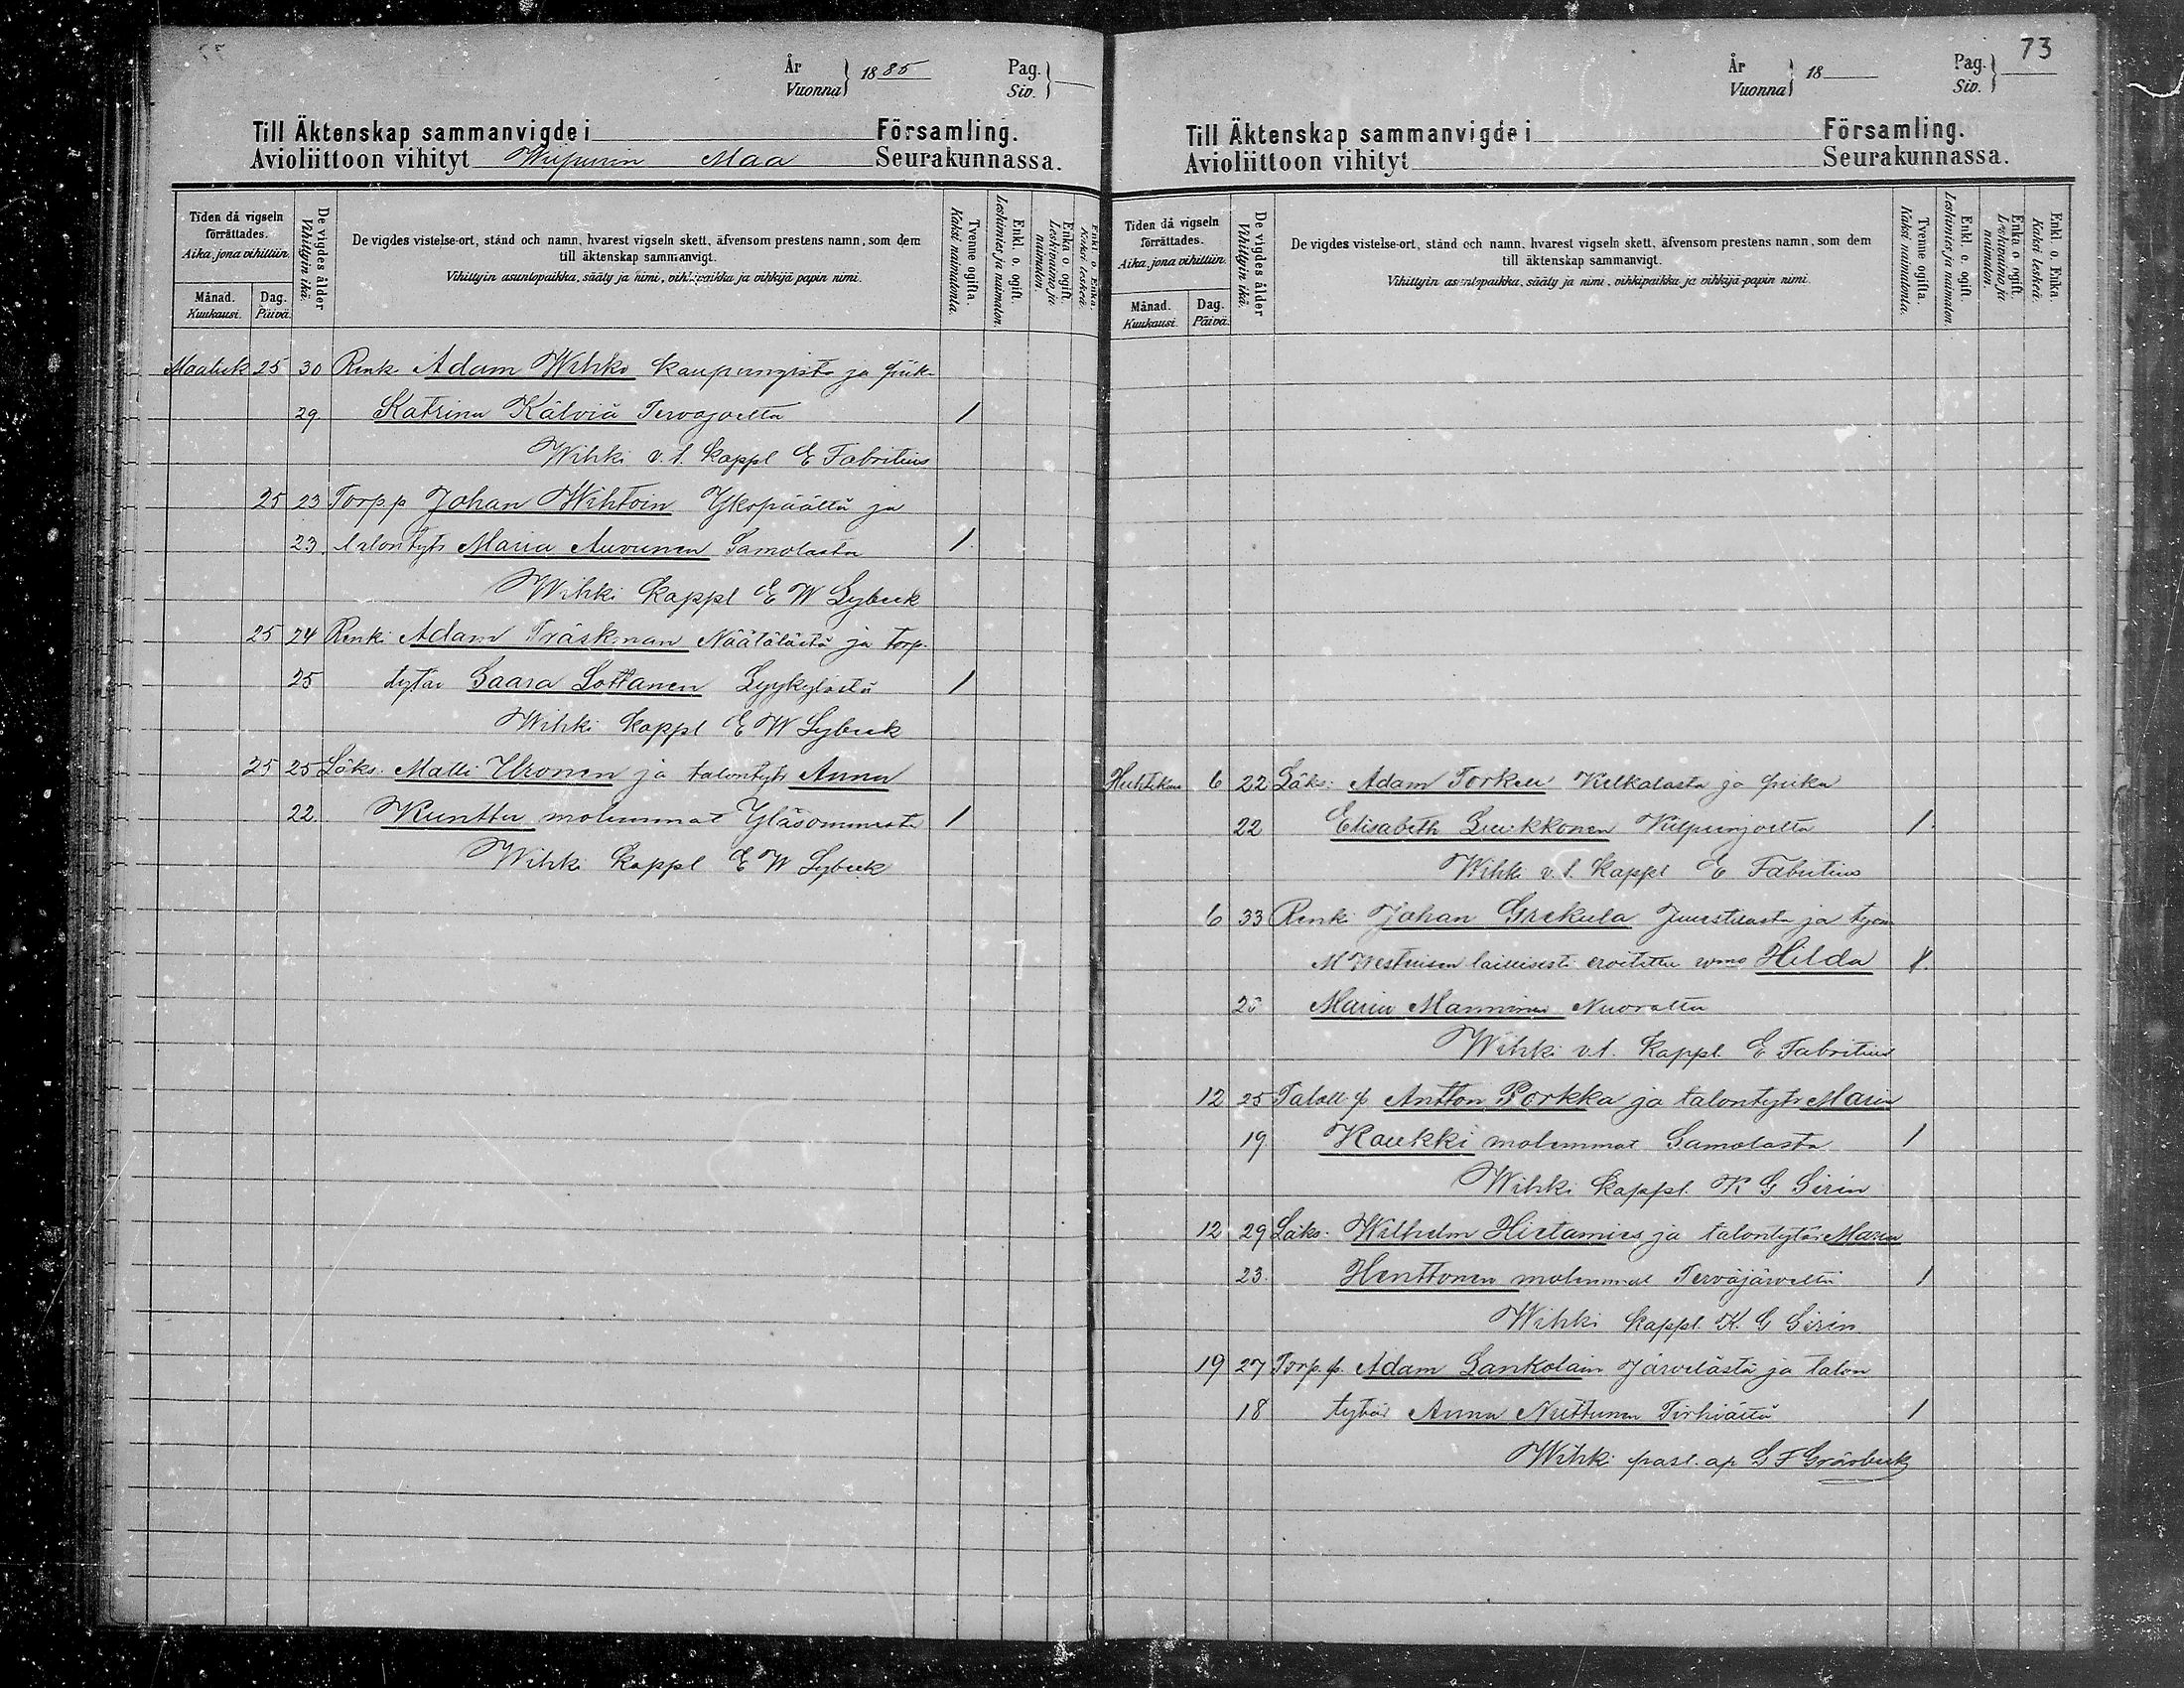 År
Vuonna 1885 Pag.
Siv.
Till Äktenskap sammanvigde i Församling.
Avioliittoon vihityt Wiipurin Maa Seurakunnassa.
Tiden då vigseln förrättades.
Aika, jona vihittiin.
Månad.
Kuukausi.
Dag.
Päivä.
De vigdes ålder
Vihittyin ikä.
De vigdes vistelse-ort, stånd och namn, hvarest vigseln skett, äfvensom prestens namn, som dem
till äktenskap sammanvigt.
Vihittyin asuntopaikka, sääty ja nimi, vihkipaikka ja vihkijä papin nimi.
Tvenne ogifta.
Kaksi naimatonta.
Enkl. o. ogift.
Leskimies ja naimaton.
Enka o ogift.
Leskivaimo ja naimaton.
Enkl. o. Enka.
Kaksi leskeä.
Maalisk 25 30 Renk. Adam Wihko kaupungista ja piik.
29. Katrina Kälviä Tervajoelta 1
Wihki v. t. kappl E Fabritius
25 23 Torp.p Johan Wihtoin Ykspäältä ja
23 talontytr Maria Auvunen Samolasta 1.
Wihki kappl E W Lybeck
25 24 Renki Adam Träskman Näätälästä ja torp.
25 tytär Saara Lottanen Lyykylästä 1
Wihki kappl E W Lybeck
25 25 Löks. Matti Uronen ja talontytr Anna
22. Kunttu molemmat Yläsommesta 1
Wihki kappl E W Lybeck
73
År
Vuonna 18 Pag.
Siv.
Till Äktenskap sammanvigde i Församling.
Avioliittoon vihityt Seurakunnassa.
Tiden då vigseln förrättades.
Aika, jona vihittiin.
Månad.
Kuukausi.
Dag.
Päivä.
De vigdes ålder
Vihittyin ikä.
De vigdes vistelse-ort, stånd och namn, hvarest vigseln skett, äfvensom prestens namn, som dem
till äktenskap sammanvigt.
Vihittyin asuntopaikka, sääty ja nimi, vihkipaikka ja vihkijä-papin nimi.
Tvenne ogifta.
Kaksi naimatonta.
Enkl. o. ogift.
Leskimies ja naimaton.
Enka o ogift.
Leskivaimo ja naimaton.
Enkl. o. Enka.
Kaksi leskeä.
Huhtikuu 6 22 Läks: Adam Torkell Kilkalasta ja piika
22 Elisabeth Luukkonen Kilpeenjoelta 1.
Wihki v. t. kappl E Fabritius
6 33 Renki Johan Grekula Juustilasta ja työm
M Westeisen laillisesti eroitettu vmo Hilda 1.
Maria Manninen Nuoralta
Wihki v.t. kappl. E Fabritius
12 25 Talall. p Antton Porkka ja talontytr Maria
19 Kaukki molemmat Samolasta 1
Wihki kappl. K G Sirin
12 29 Läks: Wilhelm Hietamies ja talontytär Maria
23. Henttonen molemmat Terväjärveltä 1
Wihki kappl. K. G Sirin
19 27 Torp.p. Adam Lankolain Järvelästä ja talon
18 tytär Anna Nuttunen Tirhiältä 1
Wihki past. ap G F Grönbeck